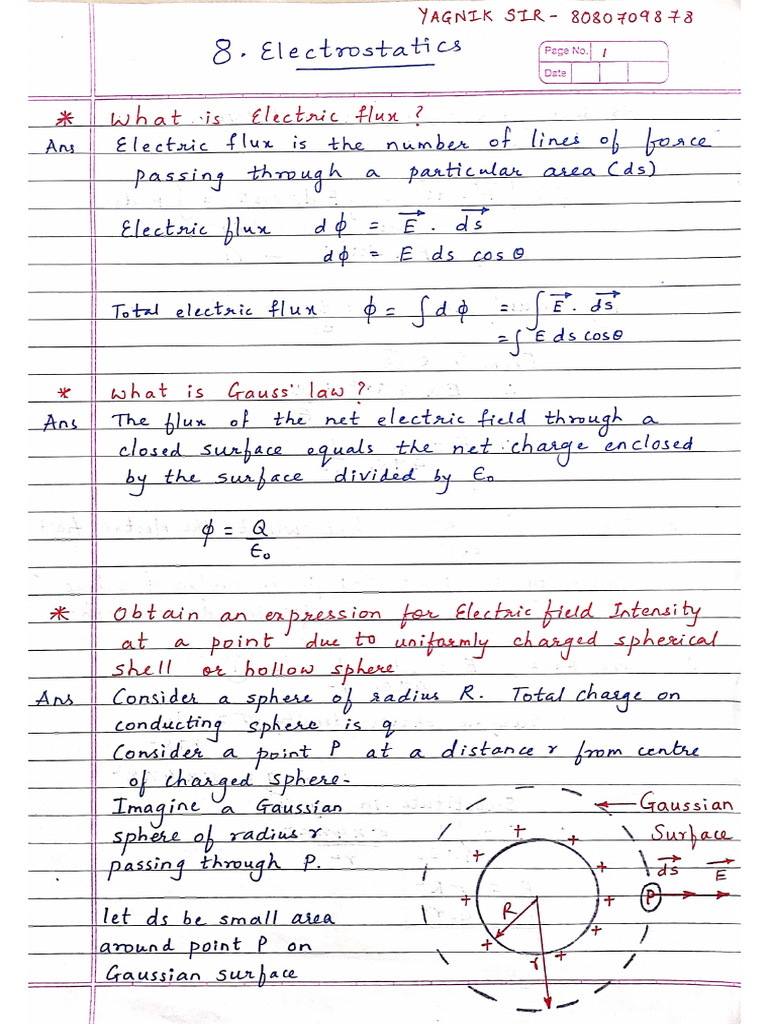 YAGNIK SIR - 8080709878
8. Electrostatics
Page No. 1
Date
* What is Electric flux?
Ans Electric flux is the number of lines of force
passing through a particular area (ds)
Electric flux dϕ = E⃗ . ds⃗
dϕ = E ds cos θ
Total electric flux ϕ = ∫dϕ = ∫E⃗ . ds⃗
= ∫E ds cosθ
* What is Gauss' law?
Ans The flux of the net electric field through a
closed surface equals the net charge enclosed
by the surface divided by ϵ₀
ϕ = Q/ϵ₀
* Obtain an expression for Electric field Intensity
at a point due to uniformly charged spherical
shell or hollow sphere
Ans Consider a sphere of radius R. Total charge on
conducting sphere is q
Consider a point P at a distance r from centre
of charged sphere.
Imagine a Gaussian
sphere of radius r
passing through P.
let ds be small area
around point P on
Gaussian surface
Gaussian
Surface
ds⃗ E⃗
P
R
r
+ + + + + + + + + +